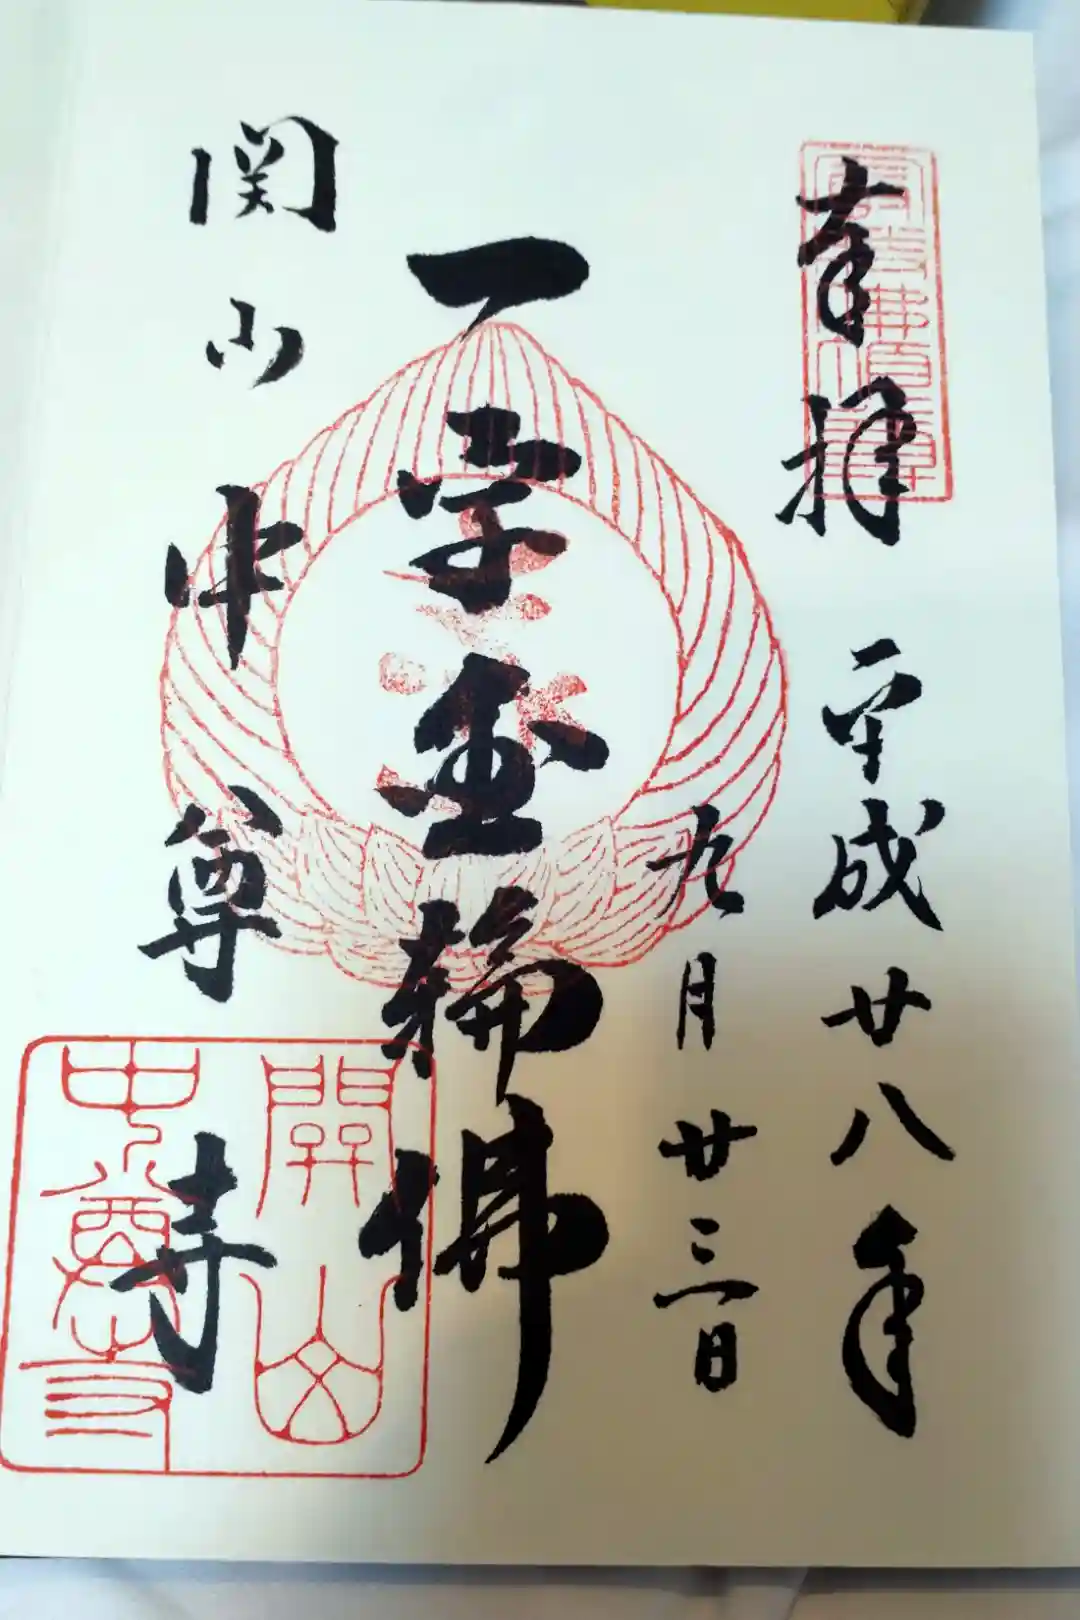 奉拝
平成廿八年
九月廿三日
一字金輪佛
関山
中尊寺
関山
中尊寺